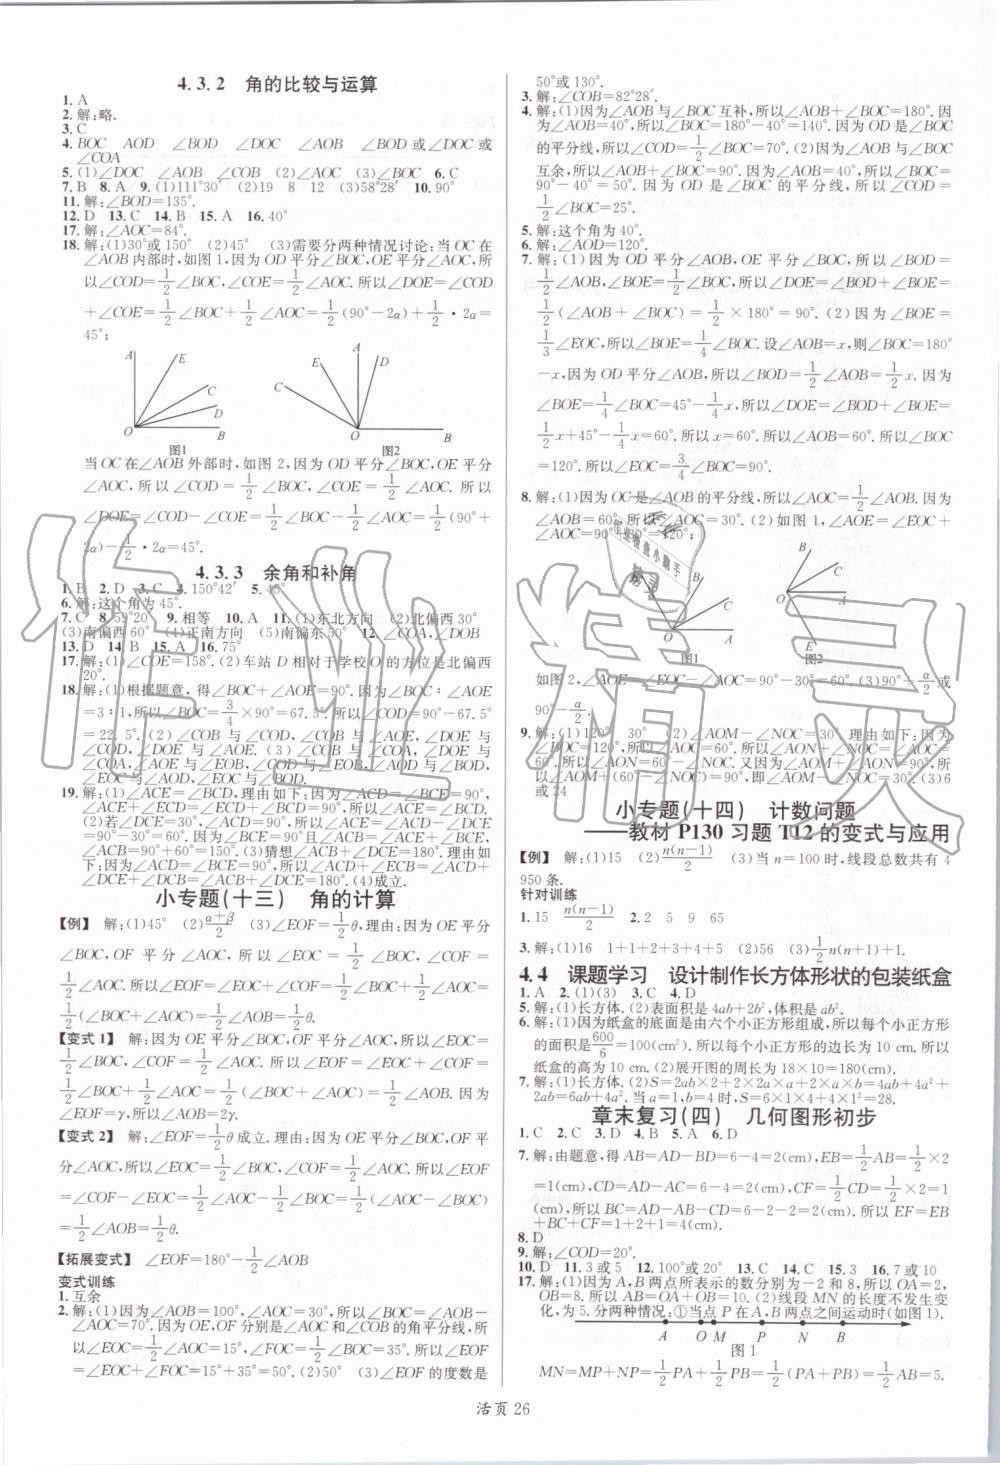 4.3.2 角的比较与运算
1. A
2. 解:略.
3. C
4. BOC AOD ∠BOD ∠DOC ∠AOB ∠BOD或∠DOC或
∠COA
5. (1)∠DOC ∠AOB ∠COB (2)∠AOC (3)∠BOC 6. C
7. B 8. A 9. (1)111°30′ (2)19 8 12 (3)58°28′ 10. 90°
11. 解:∠BOD=135°.
12. D 13. C 14. B 15. A 16. 40°
17. 解:∠AOC=84°.
18. 解:(1)30°或150° (2)45° (3)需要分两种情况讨论:当OC在
∠AOB内部时,如图1,因为OD平分∠BOC,OE平分∠AOC,所
以∠COD=1/2∠BOC,∠COE=1/2∠AOC.所以∠DOE=∠COD
+∠COE=1/2∠BOC+1/2∠AOC=1/2(90°-2α)+1/2·2α=
45°;
A E C D O B 图1
C E A D O B 图2
当OC在∠AOB外部时,如图2,因为OD平分∠BOC,OE平分
∠AOC,所以∠COD=1/2∠BOC,∠COE=1/2∠AOC.所以
∠DOE=∠COD-∠COE=1/2∠BOC-1/2∠AOC=1/2(90°+
2α)-1/2·2α=45°.
4.3.3 余角和补角
1. B 2. D 3. C 4. 150°42′ 5. 45°
6. 解:这个角为45°.
7. C 8. 59°20′ 9. 相等 10. A 11. (1)东北方向 (2)北偏西30°
(3)南偏西60° (4)正南方向 (5)南偏东50° 12. ∠COA,∠DOB
13. D 14. B 15. A 16. 75°
17. 解:(1)∠COE=158°.(2)车站D相对于学校O的方位是北偏西
20°.
18. 解:(1)根据题意,得∠BOC+∠AOE=90°.因为∠BOC:∠AOE
=3:1,所以∠BOC=3/4×90°=67.5°.所以∠COD=90°-67.5°
=22.5°.(2)∠COB与∠COD,∠COB与∠AOE,∠DOE与
∠COD,∠DOE与∠AOE.(3)∠COB与∠AOC,∠DOE与
∠COA,∠AOE与∠EOB,∠COD与∠EOB,∠AOD与∠BOD,
∠EOC与∠AOD,∠EOC与∠BOD.
19. 解:(1)∠ACE=∠BCD,理由如下:因为∠ACD=∠BCE=90°,
∠ACE+∠ECD=∠ECD+∠BCD=90°,所以∠ACE=∠BCD.
(2)若∠DCE=30°,∠ACD=90°,所以∠ACE=∠ACD-
∠DCE=90°-30°=60°.因为∠BCE=90°,所以∠ACB=∠ACE+
∠BCE=90°+60°=150°.(3)猜想∠ACB+∠DCE=180°.理由如
下:因为∠ACD=90°=∠ECB,∠ACD+∠ECB+∠ACB+
∠DCE=360°,所以∠ECD+∠ACB=360°-(∠ACD+∠ECB)=
360°-180°=180°.(4)成立.
小专题(十三) 角的计算
【例】 解:(1)45° (2)(α+β)/2 (3)∠EOF=1/2θ,理由:因为OE平分
∠BOC,OF平分∠AOC,所以∠EOC=1/2∠BOC,∠COF=
1/2∠AOC,所以∠EOF=∠EOC+∠COF=1/2∠BOC+
1/2∠AOC=1/2(∠BOC+∠AOC)=1/2∠AOB=1/2θ.
【变式1】 解:因为OE平分∠BOC,OF平分∠AOC,所以∠EOC=
1/2∠BOC,∠COF=1/2∠AOC,所以∠EOF=∠EOC+∠COF=
1/2∠BOC+1/2∠AOC=1/2(∠BOC+∠AOC)=1/2∠AOB.因为
∠EOF=γ,所以∠AOB=2γ.
【变式2】 解:∠EOF=1/2θ成立.理由:因为OE平分∠BOC,OF平
分∠AOC,所以∠EOC=1/2∠BOC,∠COF=1/2∠AOC.所以∠EOF
=∠COF-∠EOC=1/2∠AOC-1/2∠BOC=1/2(∠AOC-∠BOC)
=1/2∠AOB=1/2θ.
【拓展变式】 ∠EOF=180°-1/2∠AOB
变式训练
1. 互余
2. 解:(1)因为∠AOB=100°,∠AOC=30°,所以∠BOC=∠AOB-
∠AOC=70°.因为OE,OF分别是∠AOC和∠COB的角平分线,所
以∠EOC=1/2∠AOC=15°,∠FOC=1/2∠BOC=35°.所以∠EOF
=∠EOC+∠FOC=15°+35°=50°.(2)50° (3)∠EOF的度数是
50°或130°.
3. 解:∠COB=82°28′.
4. 解:(1)因为∠AOB与∠BOC互补,所以∠AOB+∠BOC=180°.因
为∠AOB=40°,所以∠BOC=180°-40°=140°.因为OD是∠BOC
的平分线,所以∠COD=1/2∠BOC=70°.(2)因为∠AOB与∠BOC
互余,所以∠AOB+∠BOC=90°.因为∠AOB=40°,所以∠BOC=
90°-40°=50°.因为OD是∠BOC的平分线,所以∠COD=
1/2∠BOC=25°.
5. 解:这个角为40°.
6. 解:∠AOD=120°.
7. 解:(1)因为OD平分∠AOB,OE平分∠BOC,所以∠BOD=
1/2∠AOB,∠BOE=1/2∠BOC.所以∠DOE=∠BOD+∠BOE=
1/2(∠AOB+∠BOC)=1/2×180°=90°.(2)因为∠BOE=
1/3∠EOC,所以∠BOE=1/4∠BOC.设∠AOB=x,则∠BOC=180°
-x,因为OD平分∠AOB,所以∠BOD=1/2∠AOB=1/2x.因为
∠BOE=1/4∠BOC=45°-1/4x,所以∠DOE=∠BOD+∠BOE=
1/2x+45°-1/4x=60°.所以x=60°.所以∠AOB=60°,所以∠BOC
=120°.所以∠EOC=3/4∠BOC=90°.
8. 解:(1)因为OC是∠AOB的平分线,所以∠AOC=1/2∠AOB.因为
∠AOB=60°,所以∠AOC=30°.(2)如图1,∠AOE=∠EOC+
B C O A 图1
B C O A E 图2
如图2,∠AOE=∠EOC-∠AOC=90°-30°=60°.(3)90°+α/2或
90°-α/2.
9. 解:(1)120° 30° (2)∠AOM-∠NOC=30°.理由如下:因为
∠BOC=120°,所以∠AOC=60°.所以∠AON+∠NOC=∠AOC=
60°.所以∠AON=60°-∠NOC.又因为∠AOM+∠AON=90°,所
以∠AOM+(60°-∠NOC)=90°,即∠AOM-∠NOC=30°.(3)6
或24
小专题(十四) 计数问题
——教材P130习题T12的变式与应用
【例】 解:(1)15 (2)n(n-1)/2 (3)当n=100时,线段总数共有4
950条.
针对训练
1. 15 n(n-1)/2 2. 2 5 9 65
3. 解:(1)16 1+1+2+3+4+5 (2)56 (3)1/2n(n+1)+1.
4.4 课题学习 设计制作长方体形状的包装纸盒
1. A 2. (1)(3) 3. C 4. D
5. 解:(1)长方体.(2)表面积是4ab+2b²,体积是ab².
6. 解:(1)因为纸盒的底面是由六个小正方形组成,所以每个小正方形
的面积是600/6=100(cm²).所以每个小正方形的边长为10 cm.所以
纸盒的高为10 cm.(2)展开图的周长为18×10=180(cm).
7. 解:(1)长方体.(2)S=2ab×2+2×2a×a+2b×a×2=4ab+4a²+
2ab=6ab+4a².当a=1,b=4时,S=6×1×4+4×1²=28.
章末复习(四) 几何图形初步
1. C 2. C 3. D 4. B 5. A 6. D
7. 解:由题意,得AB=AD-BD=6-4=2(cm),EB=1/2AB=1/2×2
=1(cm),CD=AD-AC=6-4=2(cm),CF=1/2CD=1/2×2=1
(cm),所以BC=AD-AB-CD=6-2-2=2(cm).所以EF=EB
+BC+CF=1+2+1=4(cm).
8. D
9. 解:∠COD=20°.
10. D 11. 3或5 12. 100°或20° 13. C 14. C 15. 3 16. 7或10
17. 解:(1)因为A,B两点所表示的数分别为-2和8,所以OA=2,
OB=8.所以AB=OA+OB=10.(2)线段MN的长度不发生变
化,为5.分两种情况:①当点P在A,B两点之间运动时(如图1).
A O M P N B
图1
MN=MP+NP=1/2PA+1/2PB=1/2(PA+PB)=1/2AB=5.
活页26